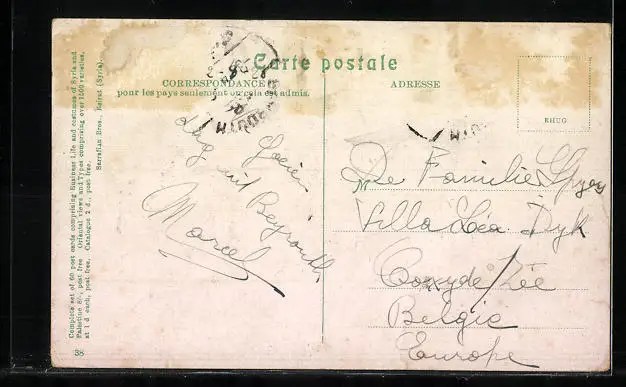 Carte postale
CORRESPONDANCE
pour les pays seulement où cela est admis.
ADRESSE
BHUG
Complete set of 60 post cards comprising Business Life and costumes of Syria and
Palestine 8/-, post free Oriental views and Types comprising over 1500 varieties,
at 1 d each, post free. Catalogue 2 d., post free.
Sarrafian Bros., Beirut (Syria).
uit Beyrouth
Marcel
De Familie
Villa Léa Dyk
Coxyde
Belgie
Europe
38